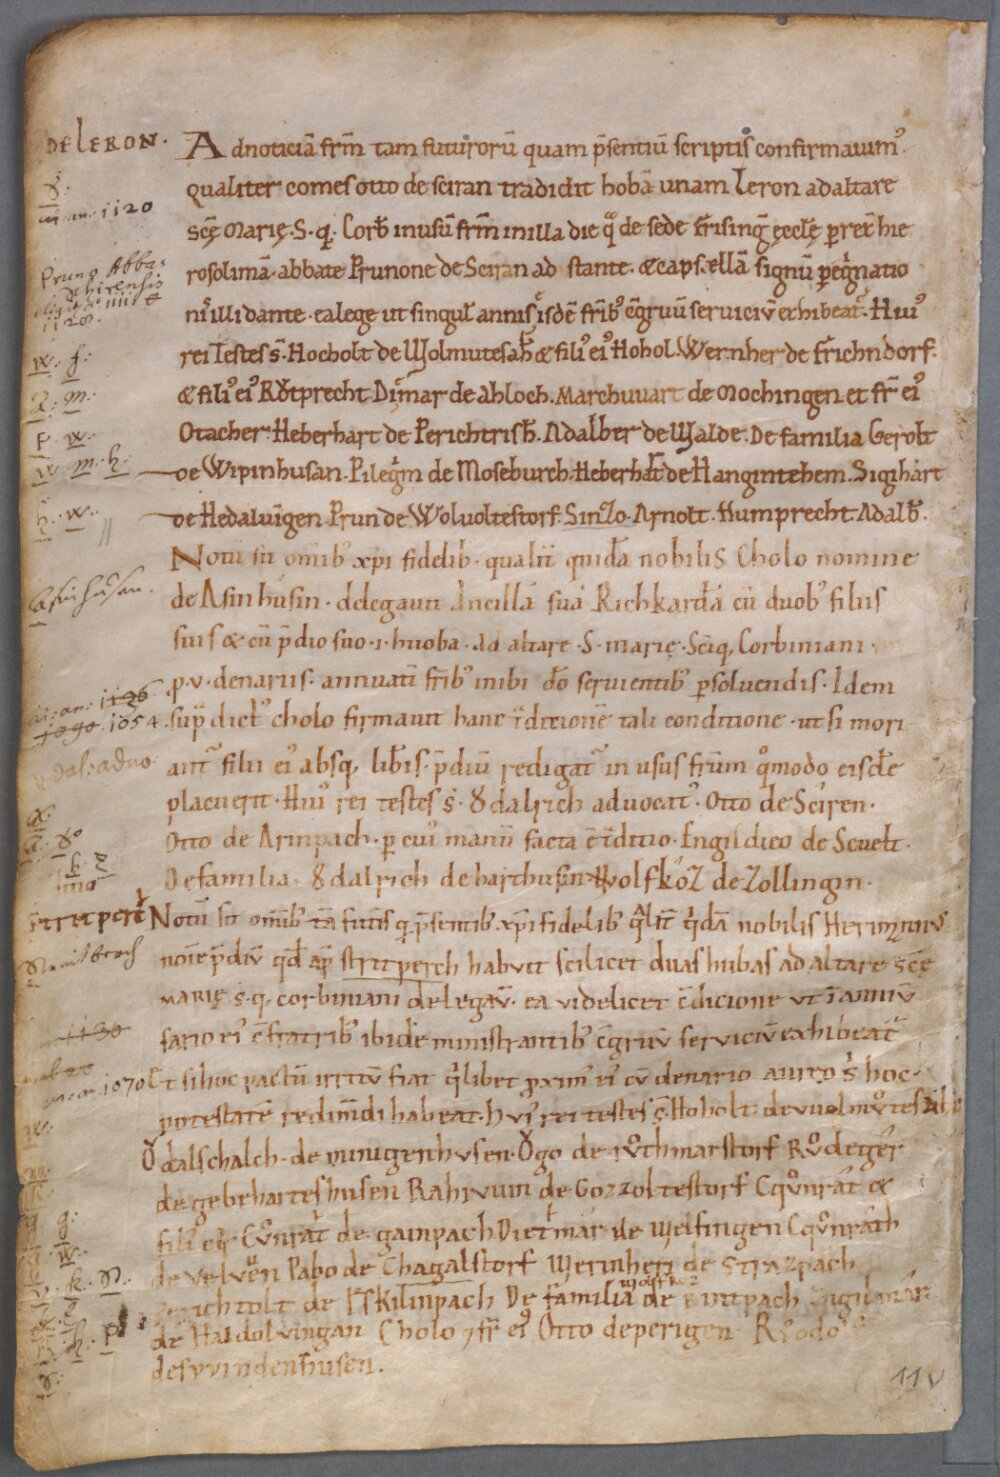 DE LERON.
Ad noticiā frm̄ tam futurorū quam p̄sentiū scriptis confirmauim᾿.
qualiter comes otto de sciran tradidit hobā unam Leron ad altare
sc̄ę Marię. S. q. Corb̄ in usū frm̄ in illa die q̊ de sede frisinḡ ęcclę
rosolimā. abbate Prunone de Sciran ad stante. & capsellā signū pegͥnatio
nͥ illi dante. ea lege ut singul annis isdē frib᾿ cgruū serviciū exhibeat᾿. Hui᾿
an: 1120
Pruno Abbas
rei Testes s̄. Hocholt de Wolmutesah & fili᾿ ei᾿ Hohol. Wernher de frichndorf.
1120.
w. f.
& fili᾿ ei᾿ Rŏtprecht. Ditmar de Ahloch. Marchuuart de Mochingen et fr̄ ei᾿
m.
Otacher. Heberhart de Perichtrish. Adalber de Walde. De familia Gerolt
p. w.
de Wipinhusan. Pilegͥm de Moseburch. Heberhat de Hangintehem. Sigihart
w. m. h.
de Hedaluingen. Prun de Woluoltestorf. Sinzo. Arnolt. Humprecht. Adalb.
h. w.
Notū sit omīb᾿ xp̄i fidelib. qualit quidā nobilis Cholo nomine
de Asinhusin. delegauit Ancillā suā Richkardā cū duob᾿ filiis
Asinhusen.
suis & cū p̄dio suo .i. huoba. Ad altare. S. marię. Sc̄iq, Corbiniani.
p. v. denariis. annuatī frīb᾿ inibi dō servientib᾿ psoluendis. Idem
an: 1126
1090. 1054.
sup̄ dict᾿ cholo firmauit hanc t̄ditionē tali conditione. ut si mori
ant᾿ filii ei᾿ absq, lib̄is. p̄diū redigat᾿ in usus frūm q̊modo eisdē
dal: advo
placuerit. Hui᾿ rei testes s̄. Ŏdalrich advocat᾿. Otto de Sciren.
Otto de Arinpach. p cui᾿ manū facta ē t̄ditio. Engildico de Scuelt.
De familia. Ŏdalrich de harthusin. Wolfkoz de Zollingin.
Stritperc
Notū sit omīb᾿ tā futis q. p̄sentib. xp̄i fidelib᾿ qͣlit qͥdā nobilis Herimann᾿
noīe p̄diū qd ap̄ stritperch habuit scilicet duas hubas ad altare sc̄ę
MARIĘ s. q. corbiniani delegau. ea videlicet c̄dicione ut ī anniū
sario ei᾿ c̄ fratrib᾿ ibidē ministrantib᾿ cgruū serviciū exhibeat᾿
1130
Et si hoc pactū irritū fiat qͥlibet proxim᾿ ei᾿ cū denario aureo s̄ hoc.
1070
potestatē redimdi habeat. hui᾿ rei testes s̄. Hoholt de vuolmůtesahe
Ŏdalschalch. de munigenhusen. Ŏgo de růthmarstorf Růdeger
de gebeharteshusen Rahvuin de Gozzoltestorf Cqůnrat &
fili᾿ ei᾿. Cůnrat de gainpach Dietmar de Welfingen Cqůnrath
de velvĕn Pabo de Chagalstorf Werinheri de Strazpach
k. S.
Perichtolt de Iskilinpach De familia de Engilmar.
de Haldolvingan Cholo 7 fr̄ ei᾿ Otto deperigen Růodolf
desvvindenhusen.
11v